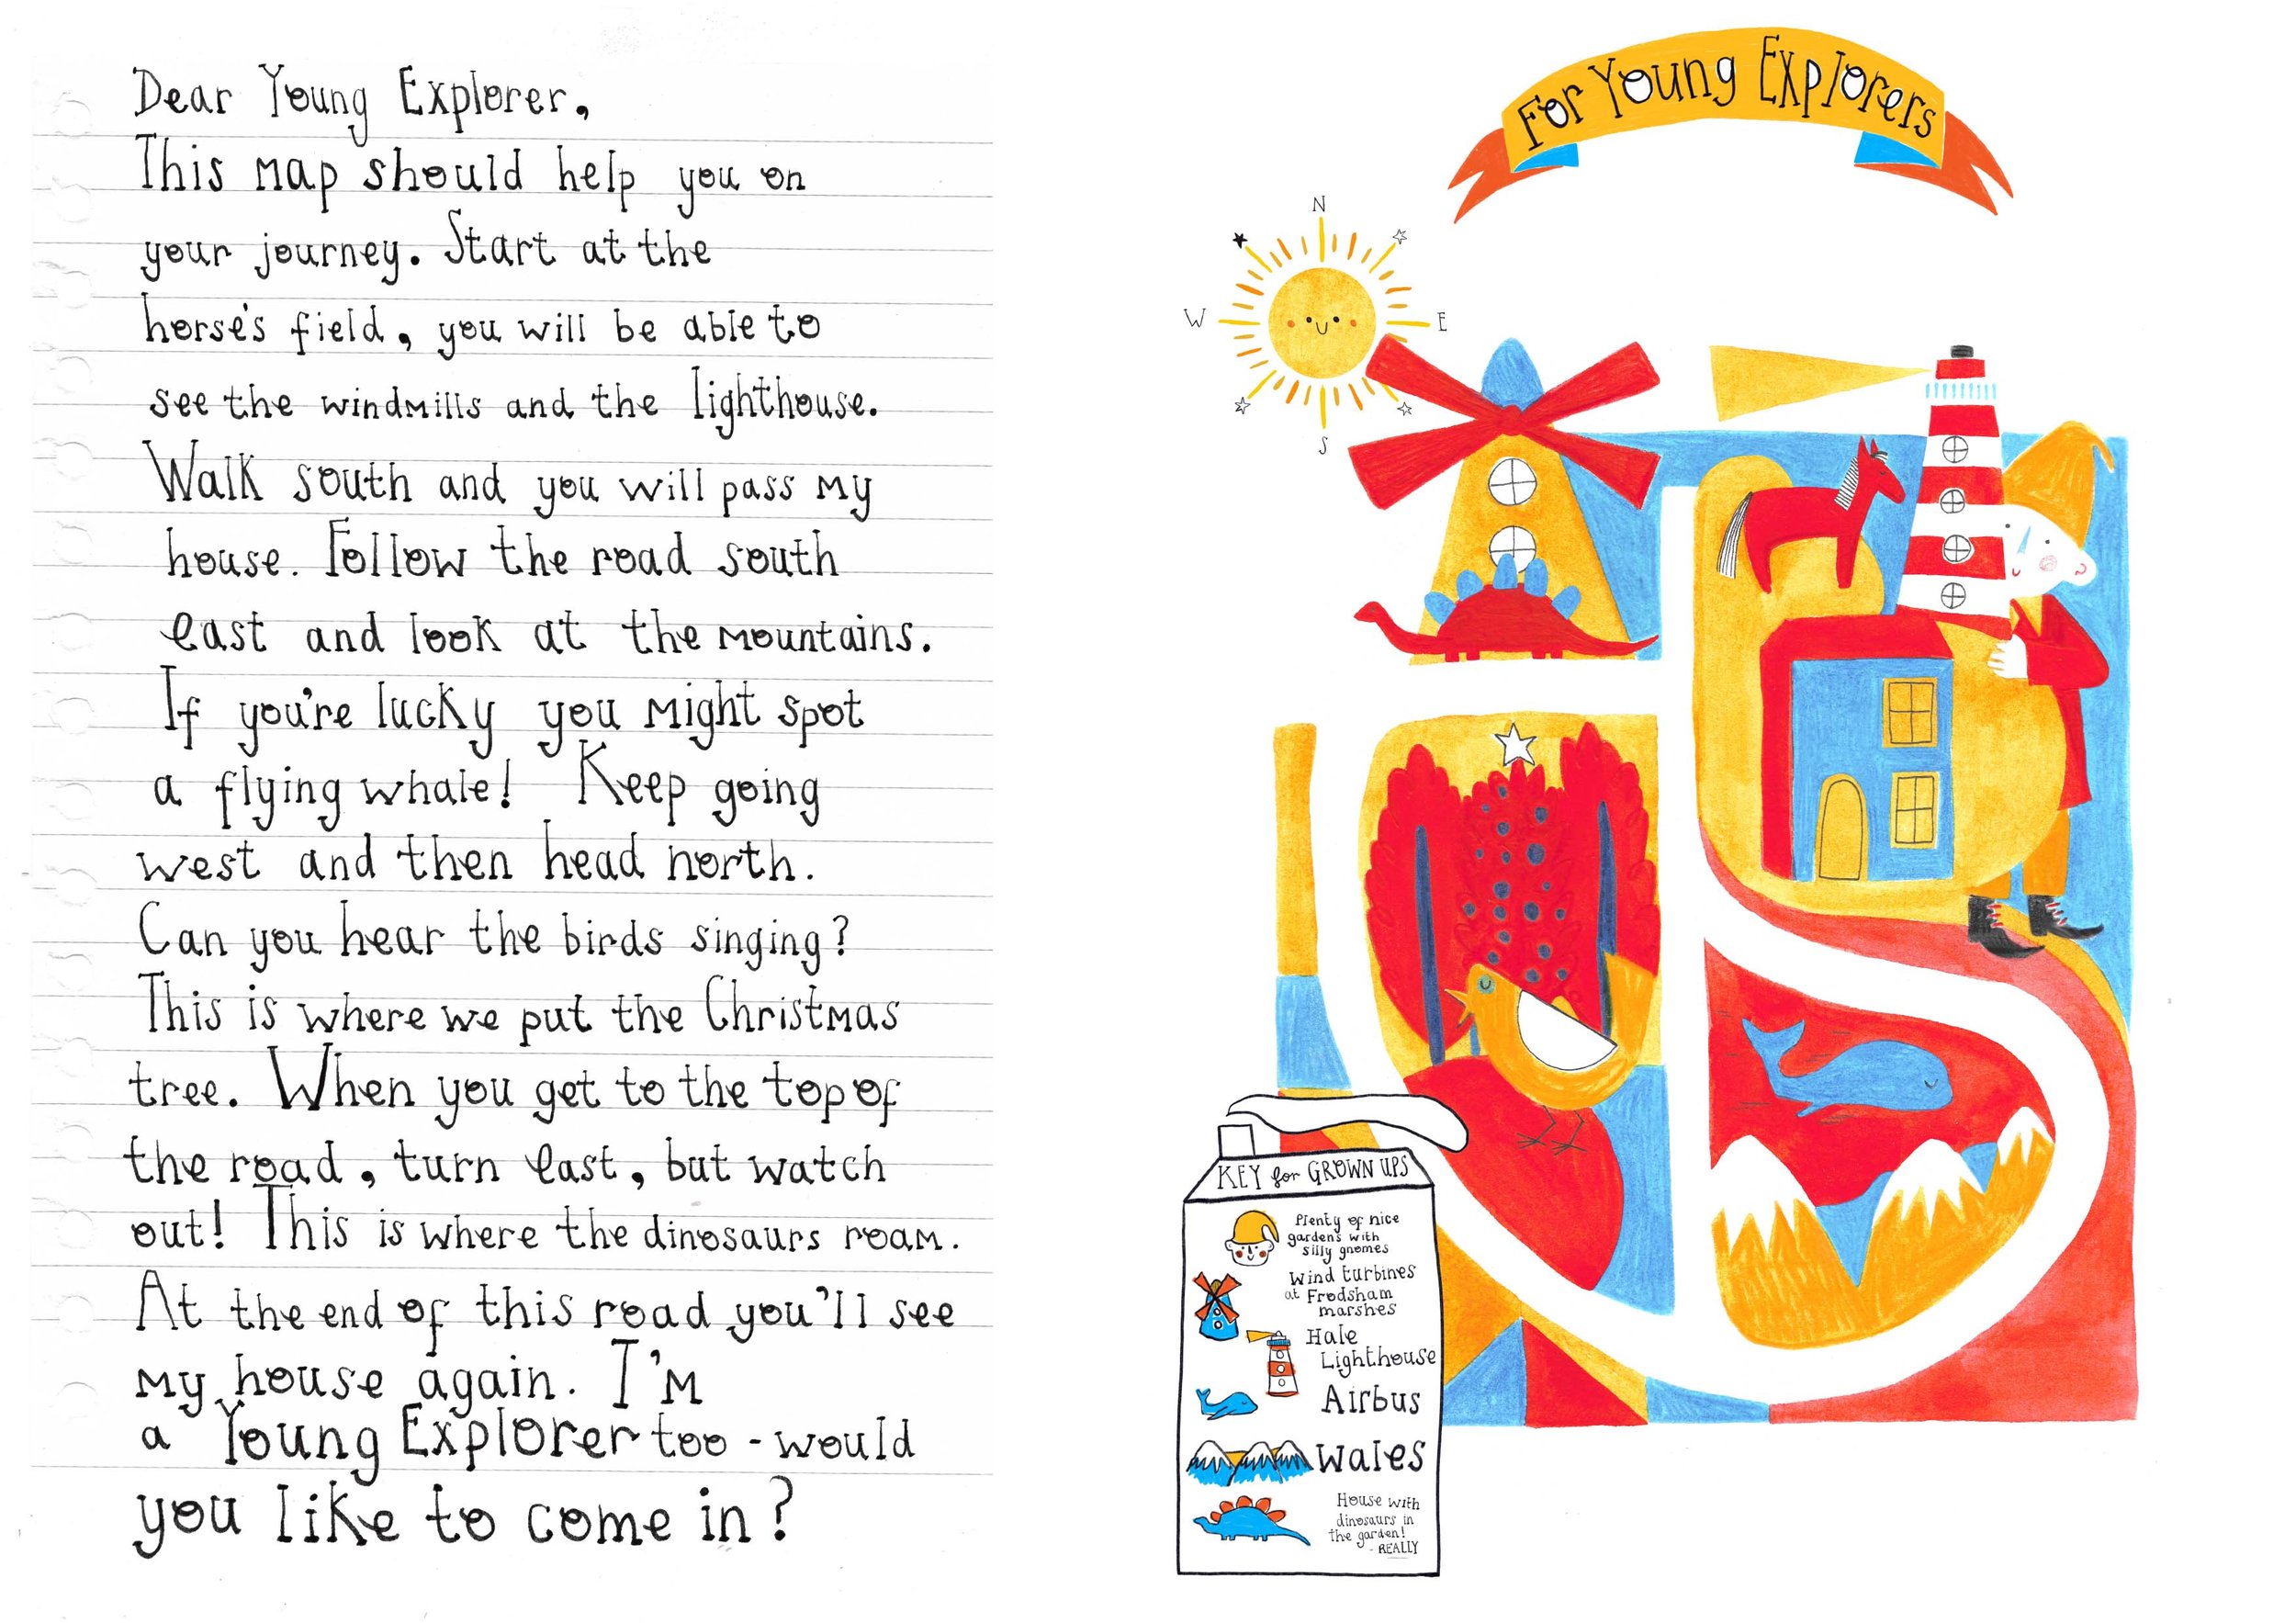 Dear Young Explorer,
This map should help you on
your journey. Start at the
horse's field, you will be able to
see the windmills and the lighthouse.
Walk south and you will pass my
house. Follow the road south
east and look at the mountains.
If you're lucky you might spot
a flying whale! Keep going
west and then head north.
Can you hear the birds singing?
This is where we put the Christmas
tree. When you get to the top of
the road, turn east, but watch
out! This is where the dinosaurs roam.
At the end of this road you'll see
my house again. I'm
a Young Explorer too - would
you like to come in?
For Young Explorers
N
W
E
S
KEY for GROWN UPS
Plenty of nice
gardens with
silly gnomes
Wind turbines
at Frodsham
marshes
Hale
Lighthouse
Airbus
Wales
House with
dinosaurs in
the garden!
- REALLY